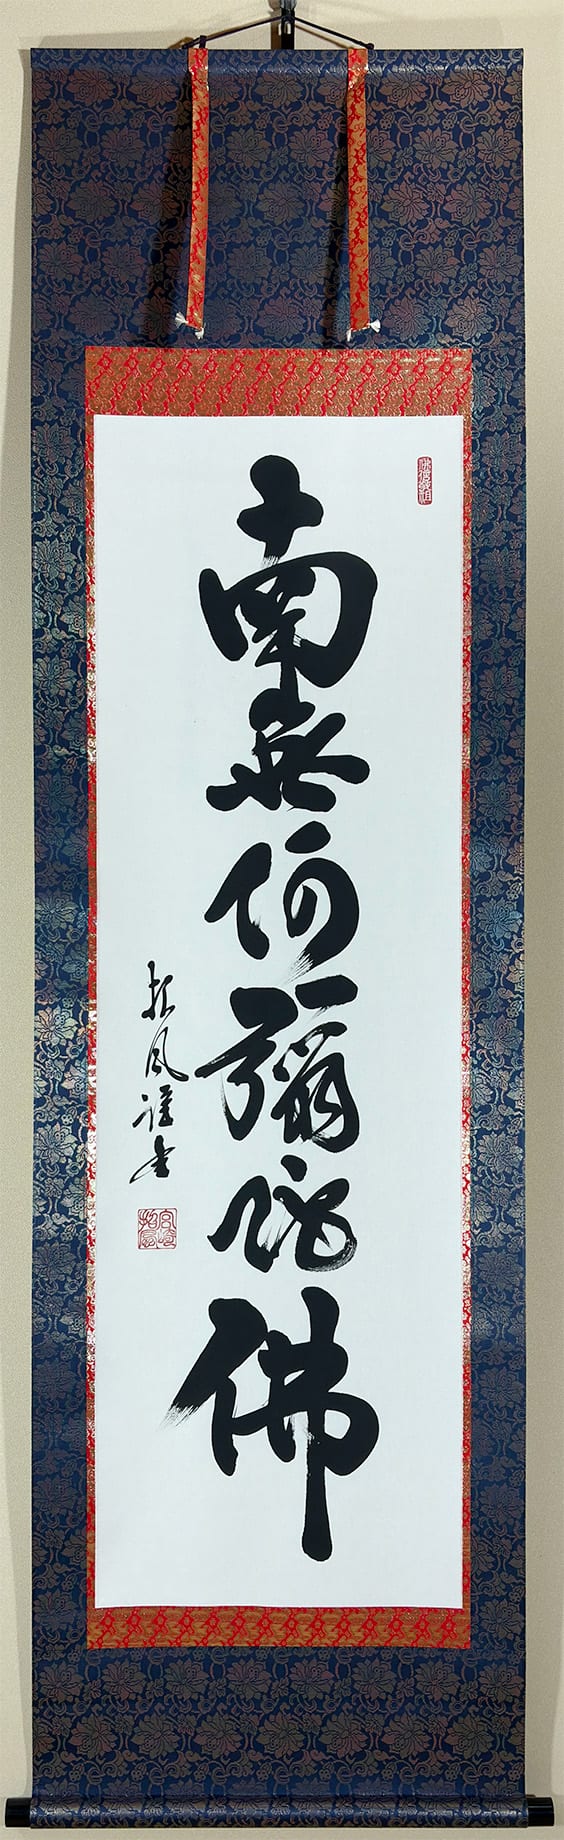 南無阿彌陀佛
拓風謹書